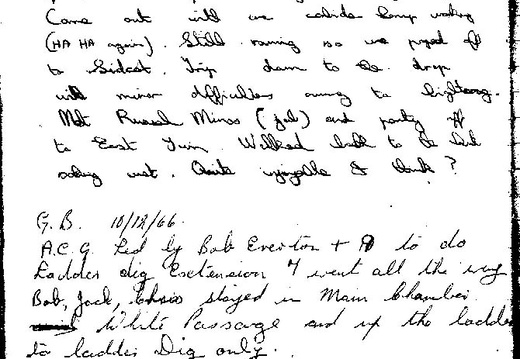 Came out with one carbide lamp working
(HA HA again). Still raining so we pushed off
to Sidcot. Trip down to the drop
with minor difficulties owing to
Met Russell Mines (jnl) and party off
to East Twin. Walked back to the hut
soaking wet. Quite enjoyable I think?
G.B. 10/12/66.
A.C.G. Led by Bob Everton + to do
Ladder dig Extension 7 went all the way
Bob, Jack, Chris stayed in Main Chamber.
White Passage and up the ladder
to ladder Dig only.